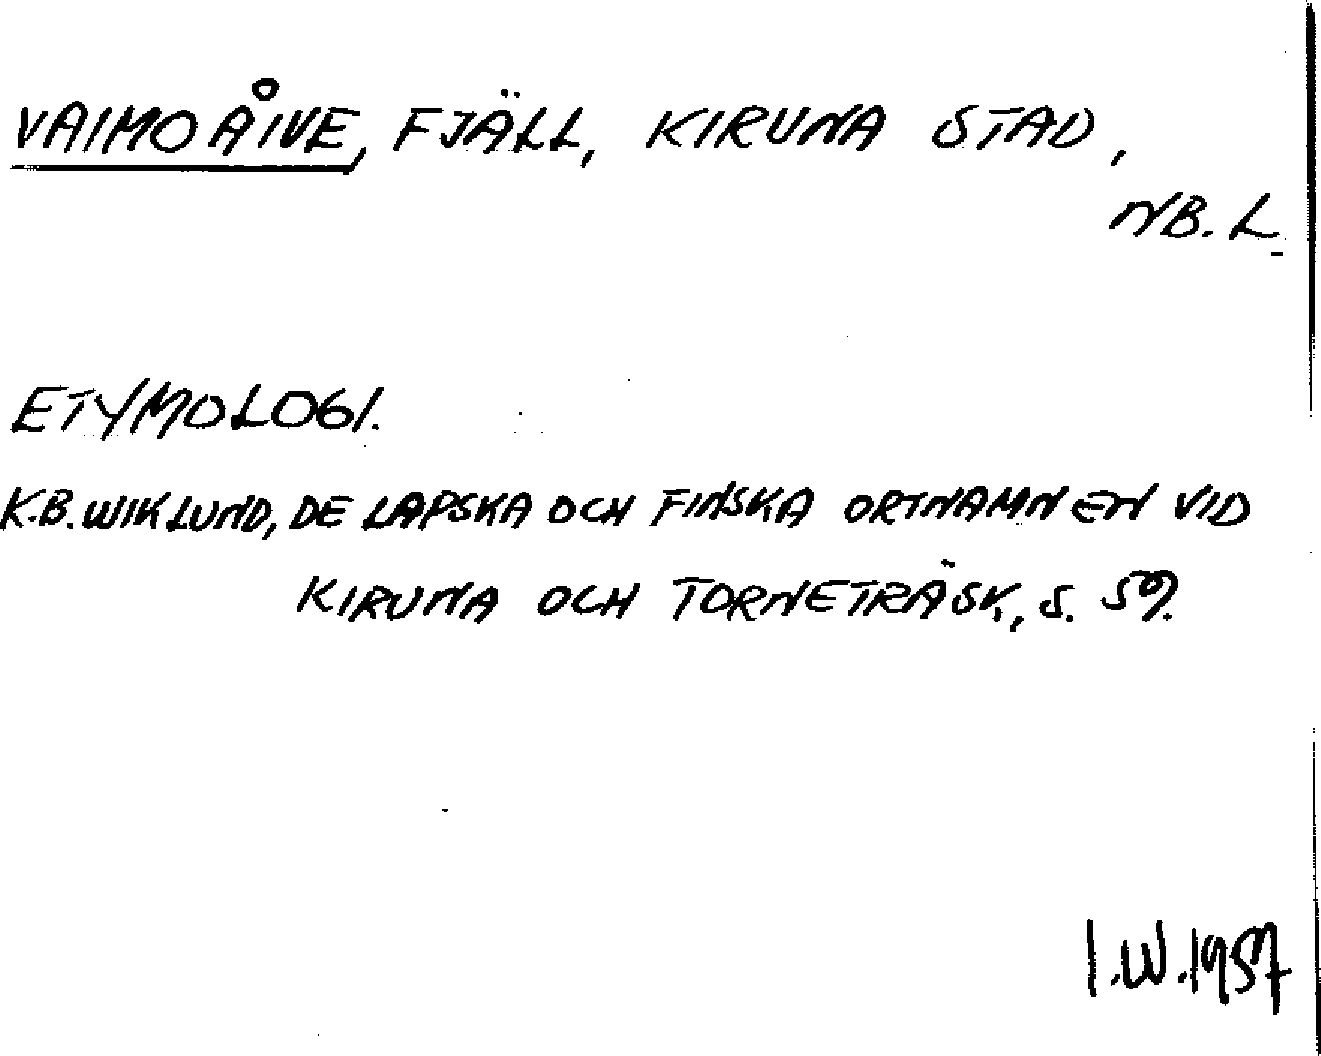 VAIMOÅIVE, FJÄLL, KIRUNA STAD,
NB. L.
ETYMOLOGI.
K.B. WIKLUND, DE LAPSKA OCH FINSKA ORTNAMNEN VID
KIRUNA OCH TORNETRÄSK, S. 59.
I.W. 1957